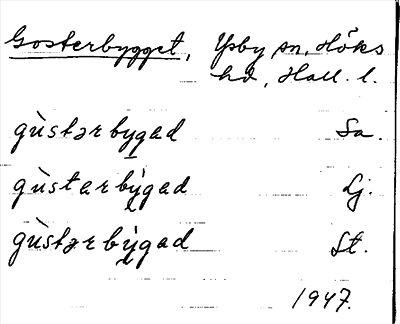 Gosterbygget, Ysby sn, Höks
hd, Hall. l.
gùstərbygad Sa.
gùstarbýgad Lj.
gùstərbýgad St.
1947.